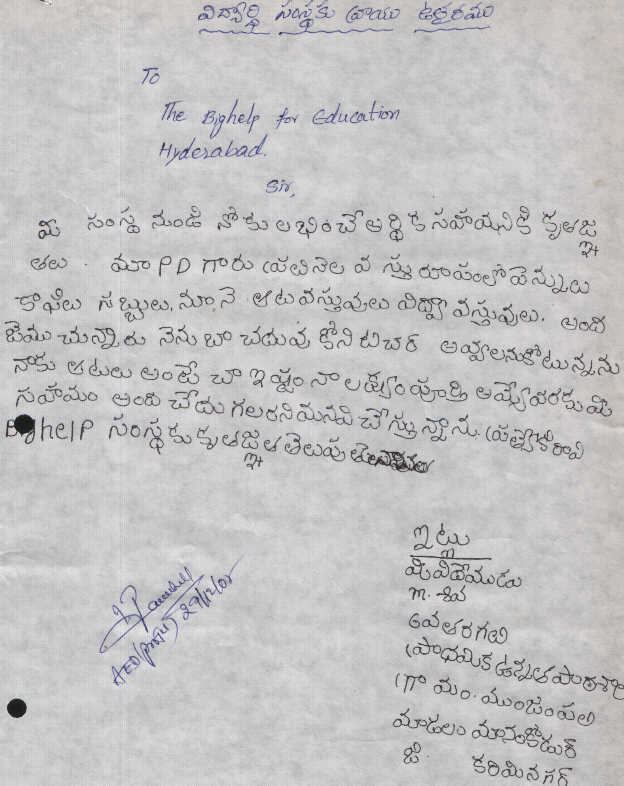 విద్యార్థి సంస్థకు వ్రాయు ఉత్తరము
To
The Bighelp for Education
Hyderabad.
Sir,
మీ సంస్థ నుండి నాకు లభించే ఆర్థిక సహాయనికి కృతజ్ఞ
తలు. మా PD గారు ప్రతినెల వస్తురూపంలో పెన్నులు
కాపిలు సబ్బులు, నూనె ఆటవస్తువులు విద్యా వస్తువులు. అంది
జేము చున్నారు నేను బా చదువు కోని టిచర్ అవ్వాలనుకోటున్నను
నాకు ఆటలు అంటే చా ఇష్టం నా లక్ష్యం పూర్తి అయ్యేవరకు మీ
సహయం అంది చేదు గలరని మనవి చేస్తున్నాను.
Bighelp సంస్థకు కృతజ్ఞత తెలుపు
ఇట్లు
మీ విదేముడు
m. శివ
6వ తరగతి
ప్రాథమిక ఉన్నత పాఠశాల
గ్రా మం. ముంజంపలి
మాడలం మానకోడుర్
జి. కరిమినగర్
29/12/08